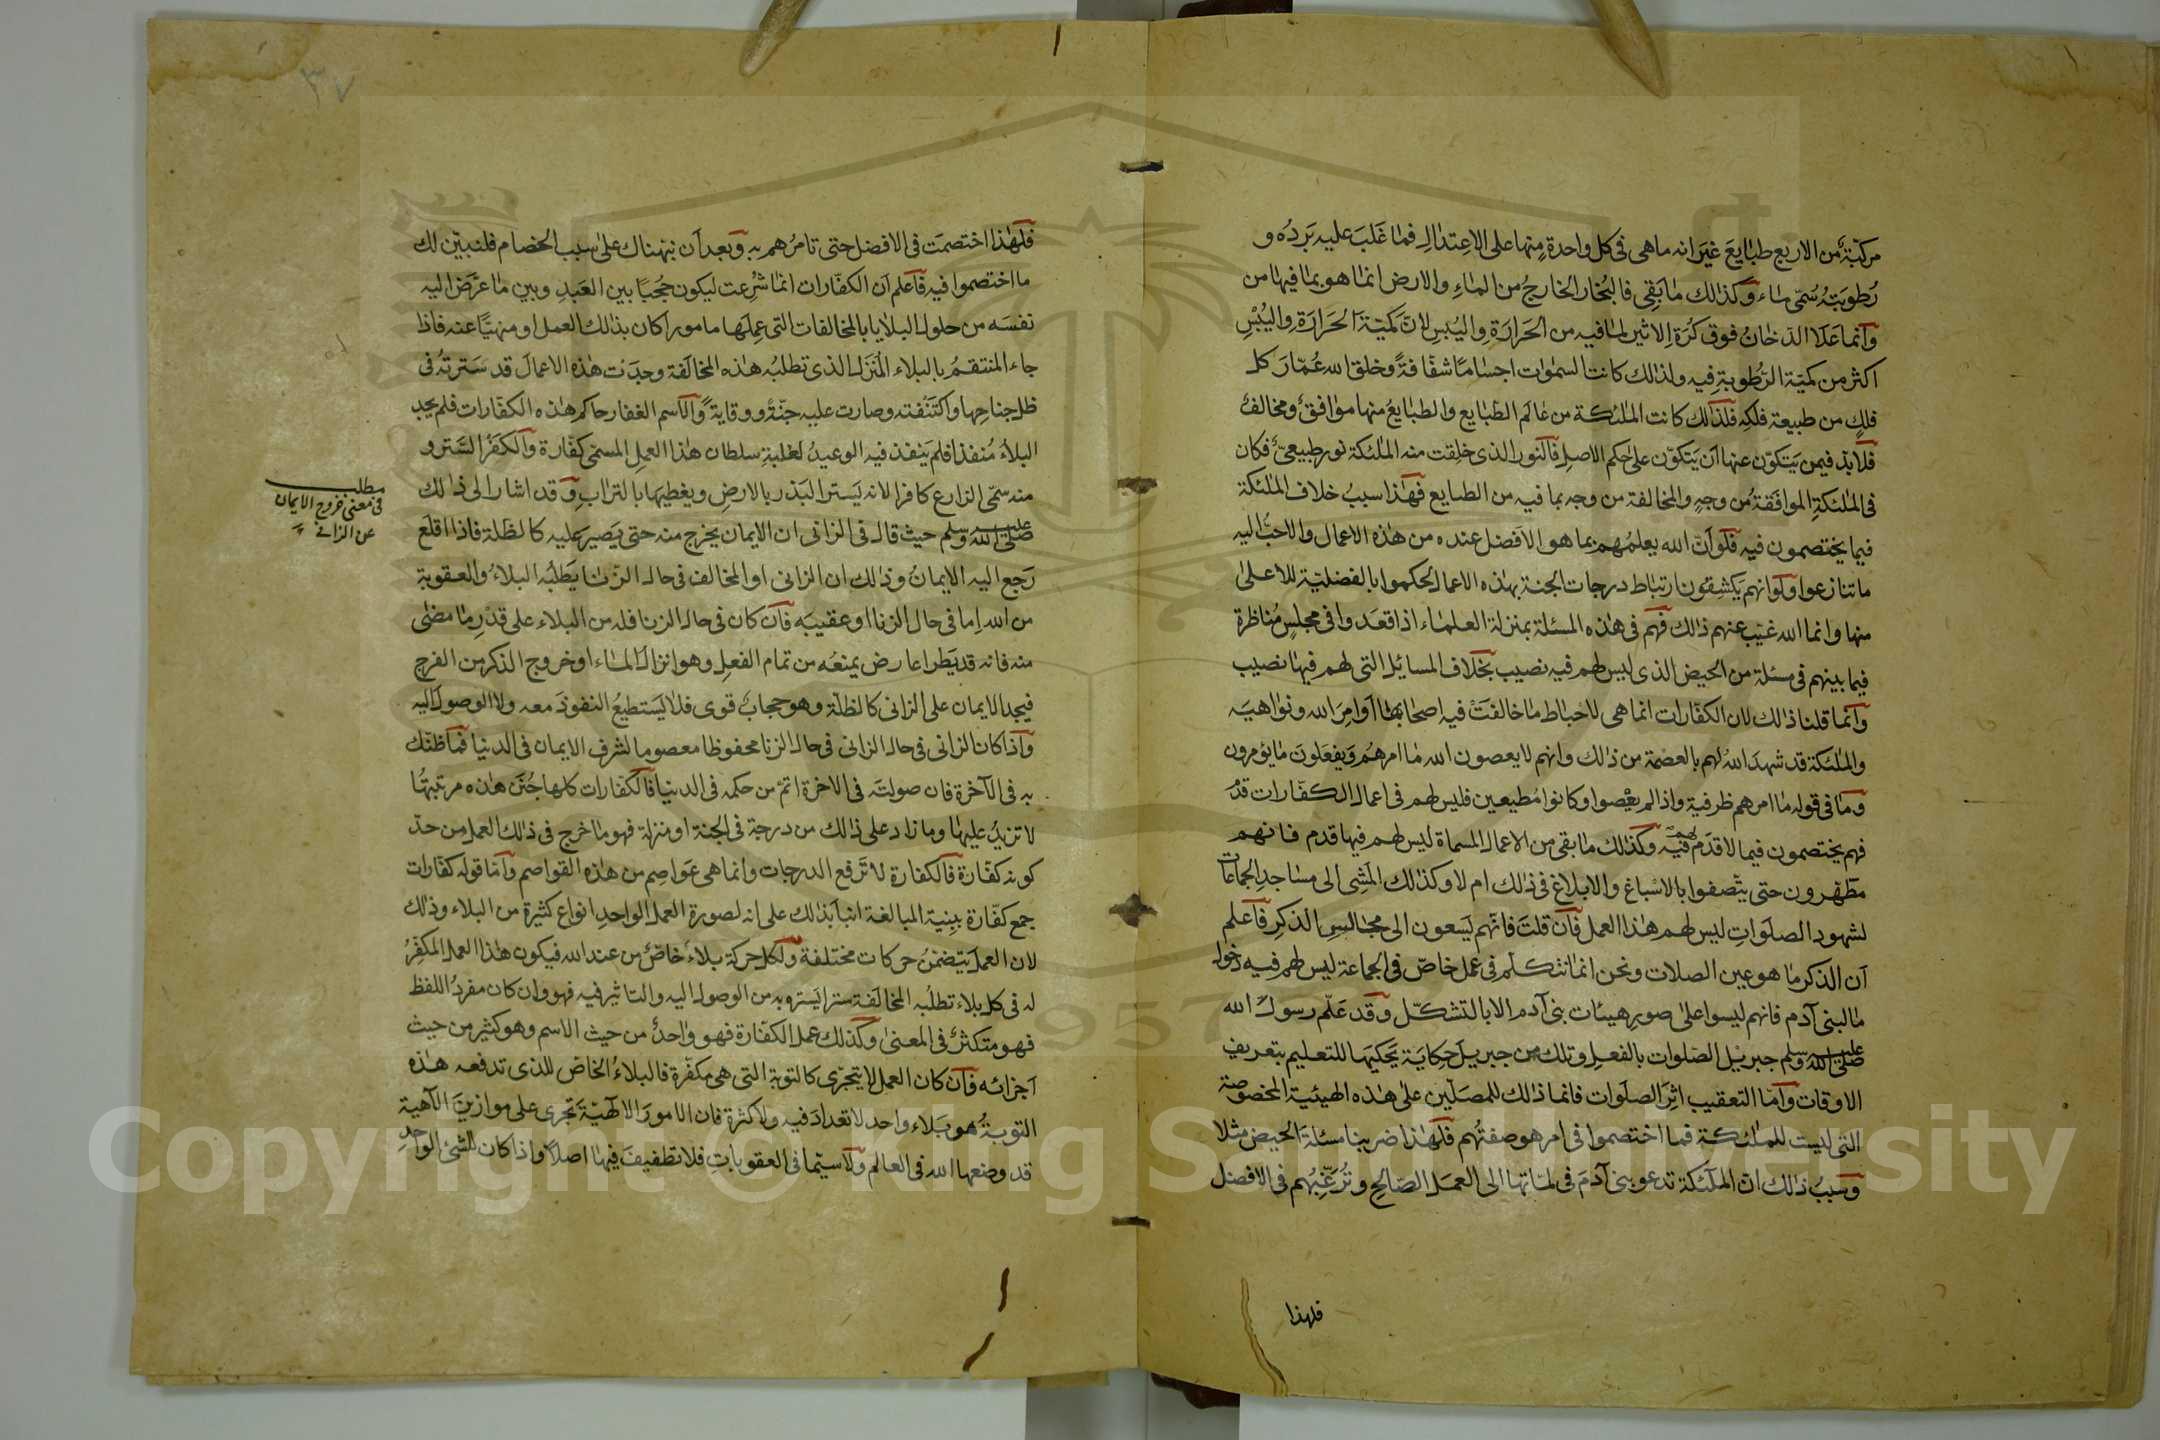 مركبةً من الاربع طبايعَ غيرَ انه ماهى فى كل واحدةٍ منها على الاعتدال فما غَلبَ عليه بَردُه و
رُطوبَتهُ سُمّى ماء وكذلك ما بَقِى فالبُخار الخارجُ من الماءِ والارض انما هو بما فيها من
وانما عَلا الدخانُ فوق كُرَةِ الاثير لما فيه من الحَرارةِ واليُبسِ لانّ كميّة الحَرارَةِ واليُبْسِ
اكثر من كميّة الرُّطوبةِ فيه ولذلك كانت السموات اجسامًا شفّافةً وخلق الله عُمّارَ كل
فلكٍ من طبيعة فلكِه فلذلك كانت الملئكة من عالم الطبايع والطبايعُ منها موافقٌ ومخالفٌ
فلابدّ فيمن يَتكوّن عنها اَن يَتكوّن على حكم الاصلِ فالنور الذى خلِقت منه الملئكة نور طبيعىّ فكان
فى الملئكةِ الموافقةُ من وجهٍ والمخالفة من وجه بما فيه من الطبايع فهذا سببُ خلاف الملئكة
فيما يختصمون فيه فلو اَنّ الله يعلمُهم بما هو الافضل عنده من هذه الاعمال والاحبّ اليه
ما تنازعوا ولو انهم يَكشفون ارتباط درجات الجنة بهذه الاعمال لحكموا بالفضليّة للاعلى
منها وانما الله غيّب عنهم ذلك فهم فى هذه المسئلة بمنزلة العلماء اذا قعدوا فى مجلسٍ مُناظرة
فيما بينهم فى مسئلة من الحيض الذى ليس لهم فيه نصيب بخلاف المسائل التى لهم فيها نصيب
وانما قلنا ذلك لان الكفارات انما هى لاحباط ما خالفَتْ فيه اصحابها اَوامِرَ الله ونواهيَه
والملئكة قد شهدَ اللهُ لهم بالعصمة من ذلك وانهم لا يعصون الله ما امرهم ويفعَلونَ ما يؤمرون
وما فى قوله ما امرهم ظرفية واذا لم يعْصوا وكانوا مُطيعين فليس لهم فى اعمال الكفّارات قدَمٌ
فهم يختصمون فيما لا قدَم لهم فيه وكذلك ما بقى من الاعمال المسماة ليس لهم فيها قدم فانهم
مطّهرون حتى يتّصفوا بالاسْباغ والابلاغ فى ذلك ام لا وكذلك المَشِى الى مسَاجدِ الجماعات
لشهود الصلَواتِ ليس لهم هذا العمل فان قلتَ فانّهم يَسعون الى مجالسِ الذكرِ فاعلم
اَن الذكر ما هو عين الصلات ونحن انما نتكلّم فى عمل خاصّ فى الجماعة ليس لهم فيه دخول
ما لبنى آدم فانهم ليسوا على صورِ هيئات بنى آدم الا بالتشكّل وقد عَلّم رسولَ الله
صلى الله عليه وسلم جبريل الصلوات بالفعلِ وتلك من جبريلَ حِكايَة يَحكيهَا للتعليم بتعريف
الاوقات وامّا التعقيب اثرَ الصلَوات فانما ذلك للمصلّين على هذه الهيئية المخصوصة
التى ليست للملئكة فما اختصموا فى امر هو صفتُهم فلهذا ضربنا مسئلة الحيض مثلا
وسَببُ ذلك انّ الملئكة تدعو بنى آدمَ فى لمّاتها الى العمل الصّالح وتُرغّبُهم فى الافضل
فلهذا
٣٧
فلهذا اختصمَت فى الافضل حتى تامُرهم به وبعد اَن نبهناك على سبب الخصام فلنبيّن لك
ما اختصموا فيه فاَعلم اَن الكفّارات انما شُرِعت ليكون حجُبًا بين العَبدِ وبين ما عرَّض اليه
نفسَه من حلول البلايا بالمخالفات التى عمِلَها مامورا كان بذلك العمل او منهيًّا عنه فاذا
جاء المنتقمُ بالبلاء المُنزَل الذى تطلبُه هذه المخالَفة وجَدَت هذه الاعمالَ قد سَترتهُ فى
ظل جناحِها واكتنَفته وصارت عليه جنّةً ووقايةً والاسم الغفار حاكم هذه الكفّارات فلم يجدِ
البلاءُ مُنفذا فلم يَنفذ فيه الوعيدُ لغلبةِ سلطان هذا العملِ المسمّى كفّارة والكفَرُ السَّتر و
منه سمّى الزارع كافرا لانه يَستر البَذر بالارضِ ويغطّيها بالترابِ وقد اشار الى ذلك
صلى الله عليه وسلم حيث قال فى الزانى ان الايمان يخرج منه حتى يَصير عليه كالظلة فاذا اقلَع
رَجع اليه الايمانُ وذلك ان الزانى او المخالف فى حال الزنا يَطلبُه البلاءُ والعقوبة
من الله اِما فى حال الزنا او عقيبَه فاَن كان فى حال الزنا فله من البلاء على قدْرِ ما مضى
منه فانه قد يَطرا عارض يمنعُه من تمام الفعلِ وهو انزال الماء او خروج الذكر من الفرج
فيجد الايمان على الزانى كالظلّة وهو حجابٌ قوى فلا يَستطيعُ النفوذَ معه ولا الوصولَ اليه
واذا كان الزانى فى حال الزانى فى حال الزنا محفوظا معصوما لشرف الايمان فى الدنيا فما ظنّك
به فى الآخرة فان صولتَه فى الآخرة اتمّ من حكمه فى الدنيا فالكفّارات كلها جُنَنٌ هذه مرتبتُها
لا تزيدُ عليها وما زاد على ذلك من درجة فى الجنة او منزلة فهو ما خرج فى ذلك العمل من حدّ
كونه كفّارة فالكفارة لا تَرفع الدرجات وانما هى عَواصِم من هذه القواصم وامّا قوله كفّارات
جمع كفّارة ببنية المبالغة انباَ بذلك على انه لصورة العمل الواحد انواع كثيرة من البلاء وذلك
لان العمل يَتضمنُ حركات مختلفة ولكل حركة بلاءٌ خاصٌّ من عند الله فيكون هذا العمل المكفِّرُ
له فى كل بلاء تطلبُه المخالَفة سترا يَستره به من الوصول اليه والتاثير فيه فهو وان كان مفردُ اللفظ
فهو متكثرٌ فى المعنى وكذلك عمل الكفّارة فهو واحدٌ من حيث الاسم وهو كثير من حيث
اَجزائه فاَن كان العمل لا يتجزى كالتوبة التى هى مكفّرة فالبلاءُ الخاصّ للذى تدفعه هذه
التوبةُ هو بَلاء واحد لا تعدادَ فيه ولا كثرة فان الامورَ الالٰهيّةَ تجرى على موازينَ الٓاهية
قد وضعها الله فى العالم ولا سيّما فى العقوباتِ فلا تطفيفَ فيها اصلاً واذا كان للشئ الواحدِ
مطلب
فى معنى خروج الايمان
عن الزانى
Copyright © King Saud University
1957